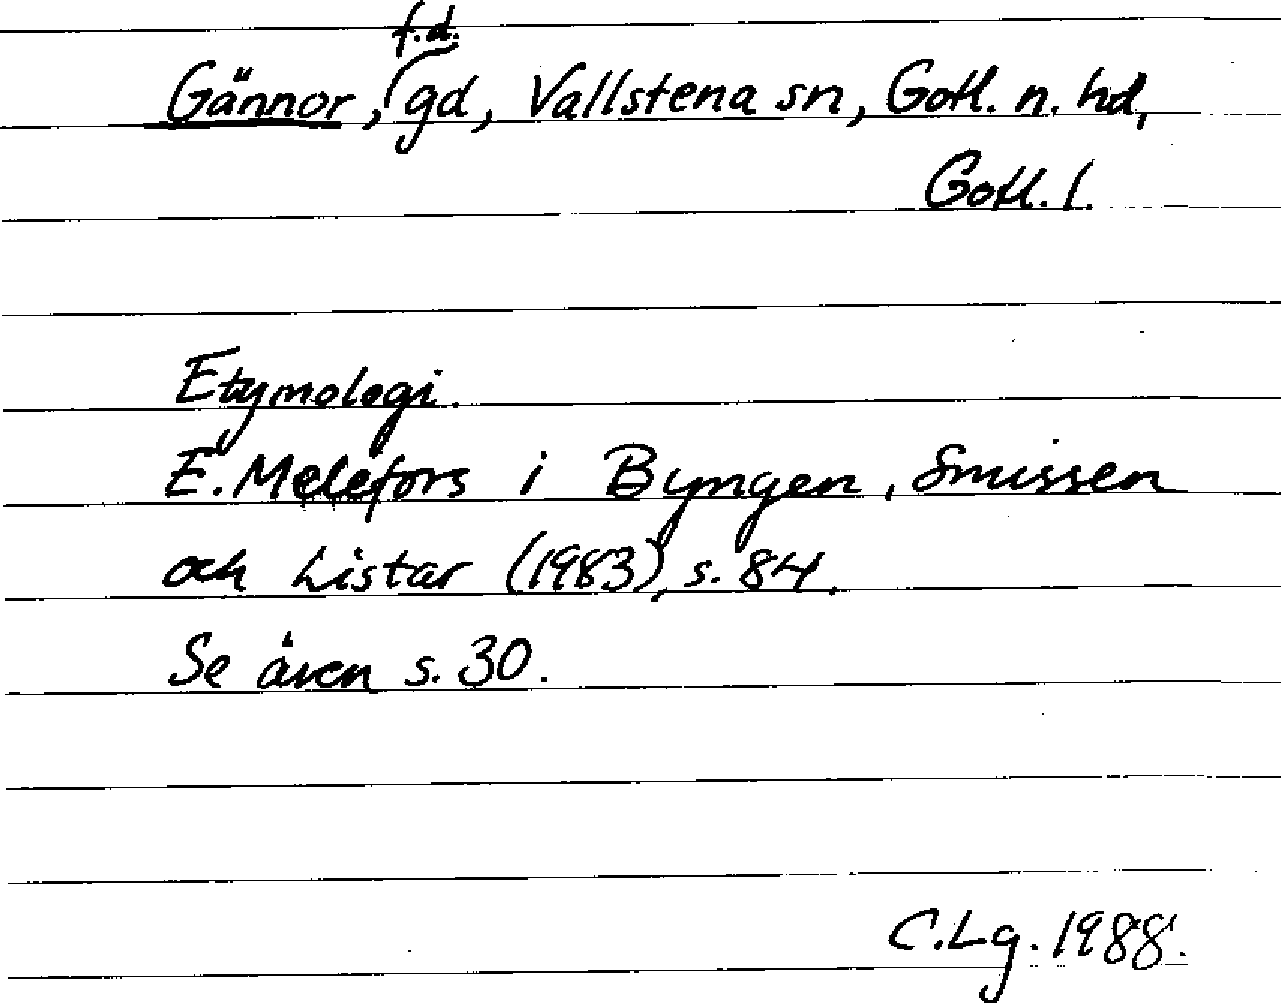 Gännor, f.d. gd, Vallstena sn, Gotl. n. hd,
Gotl. l.
Etymologi.
E. Melefors i Byngen, Smissen
och Listar (1983), s. 84.
Se även s. 30.
C.Lg. 1988.